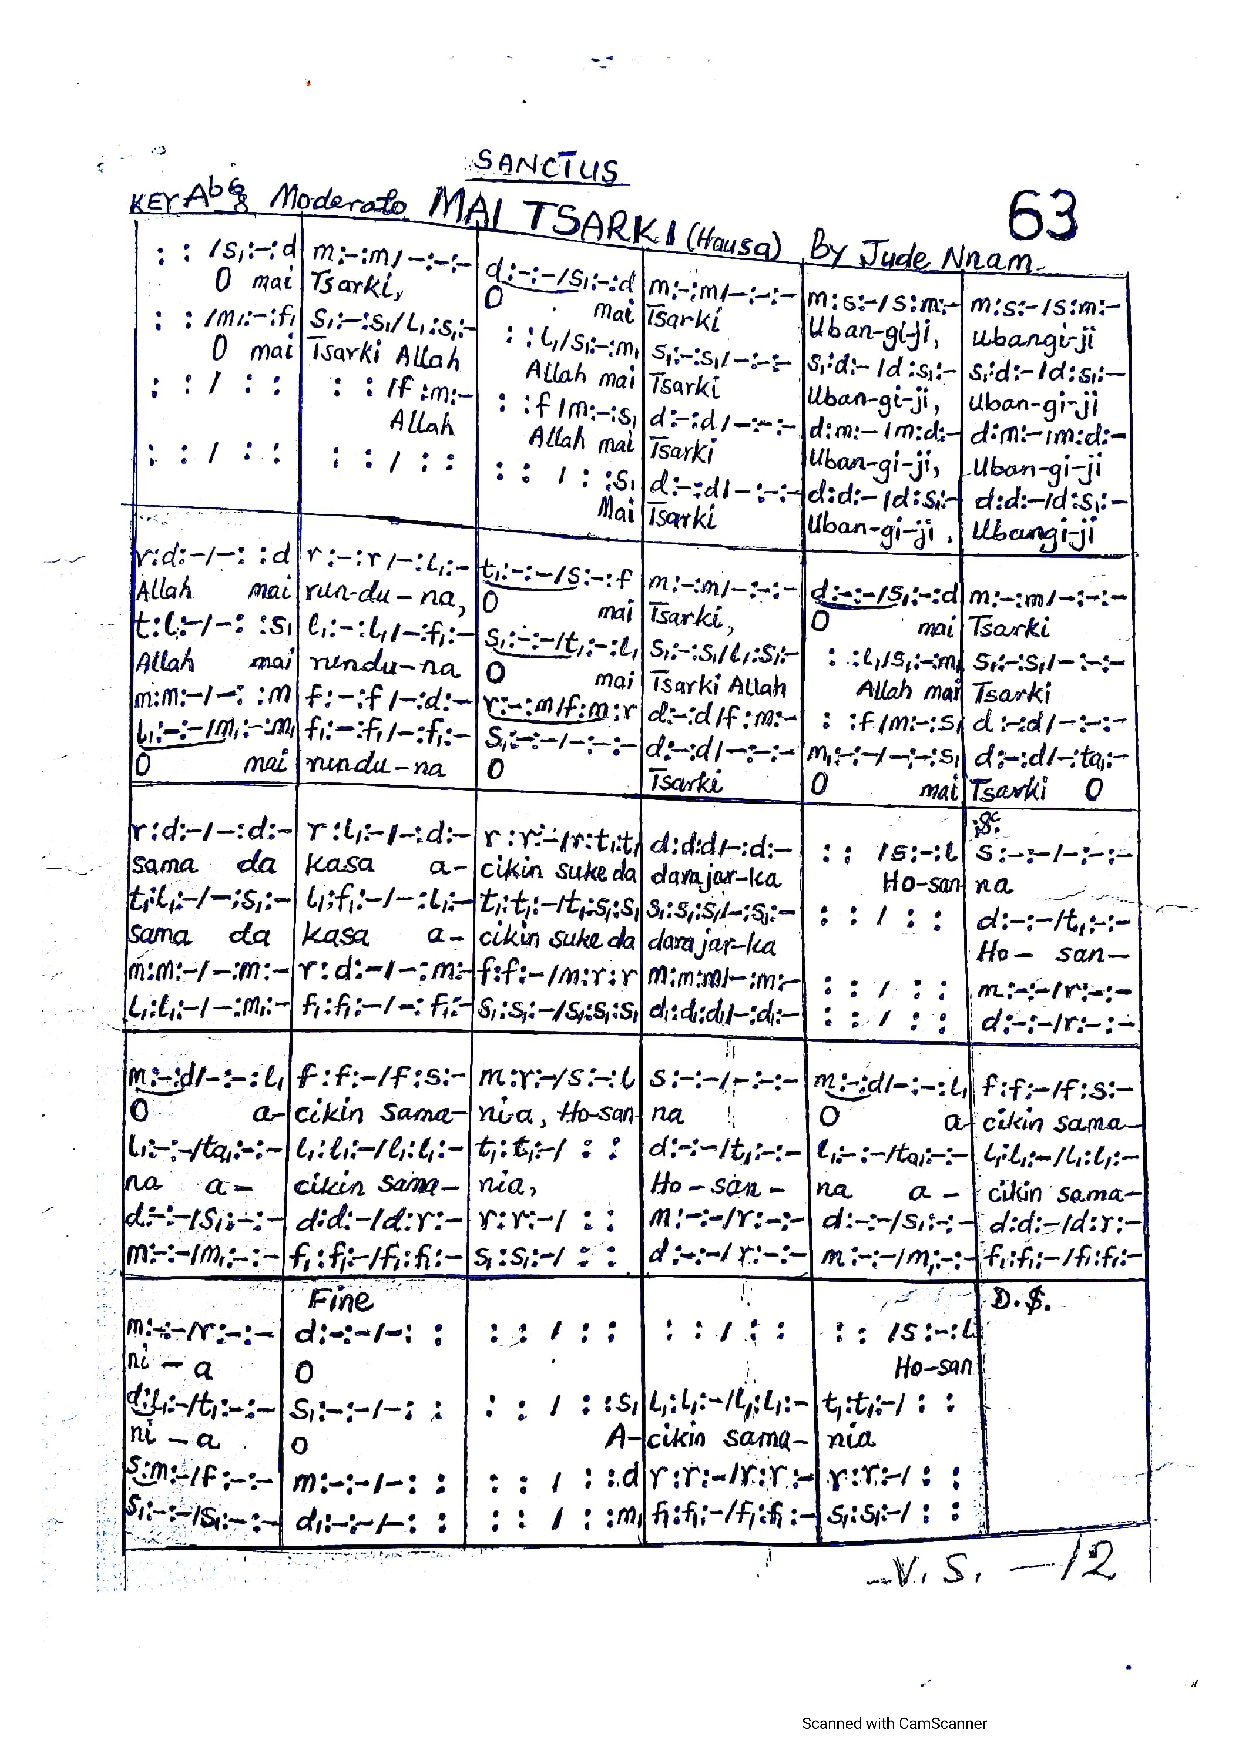 SANCTUS
KEY Ab 6/8 Moderato MAI TSARKI (Hausa) By Jude Nnam
63
: : /s₁:-:d | m:-:m/-:-:- | d:-:-/s₁:-:d | m:-:m/-:-:- | m:s:-/s:m:- | m:s:-/s:m:-
O mai | Tsarki, | O mai | Tsarki | Uban-gi-ji, | Ubangi-ji
: : /m₁:-:f₁ | s₁:-:s₁/l₁:s₁:- | : :l₁/s₁:-:m₁ | s₁:-:s₁/-:-:- | s₁:d:-/d:s₁:- | s₁:d:-/d:s₁:-
O mai | Tsarki Allah | Allah mai | Tsarki | Uban-gi-ji, | Uban-gi-ji
: : / : : | : : /f:m:- | : :f/m:-:s₁ | d:-:d/-:-:- | d:m:-/m:d:- | d:m:-/m:d:-
Allah | Allah mai | Tsarki | Uban-gi-ji, | Uban-gi-ji
: : / : : | : : / : : | : : / : :s₁ | d:-:d/-:-:- | d:d:-/d:s₁:- | d:d:-/d:s₁:-
Mai | Tsarki | Uban-gi-ji, | Ubangi-ji
r:d:-/-: :d | r:-:r/-:l₁:- | t₁:-:-/s:-:f | m:-:m/-:-:- | d:-:-/s₁:-:d | m:-:m/-:-:-
Allah mai | run-du-na, | O mai | Tsarki, | O mai | Tsarki
t:l:-/-: :s₁ | l₁:-:l₁/-:f₁:- | s₁:-:-/t₁:-:l₁ | s₁:-:s₁/l₁:s₁:- | : :l₁/s₁:-:m₁ | s₁:-:s₁/-:-:-
Allah mai | rundu-na | O mai | Tsarki Allah | Allah mai | Tsarki
m:m:-/-: :m | f:-:f/-:d:- | r:-:m/f:m:r | d:-:d/f:m:- | : :f/m:-:s₁ | d:-:d/-:-:-
l₁:-:-/m₁:-:m₁ | f₁:-:f₁/-:f₁:- | s₁:-:-/-:-:- | d:-:d/-:-:- | m₁:-:-/-:-:s₁ | d:-:d/-:ta₁:-
O mai | rundu-na | O | Tsarki | O mai | Tsarki O
:S:
r:d:-/-:d:- | r:l₁:-/-:d:- | r:r:-/r:t₁:t₁ | d:d:d/-:d:- | : : /s:-:l | s:-:-/-:-:-
sama da | kasa a- | cikin suke da | darajar-ka | Ho-san | na
t₁:l₁:-/-:s₁:- | l₁:f₁:-/-:l₁:- | t₁:t₁:-/t₁:s₁:s₁ | s₁:s₁:s₁/-:s₁:- | : : / : : | d:-:-/t₁:-:-
sama da | kasa a- | cikin suke da | darajar-ka | Ho- san-
m:m:-/-:m:- | r:d:-/-:m:- | f:f:-/m:r:r | m:m:m/-:m:- | : : / : : | m:-:-/r:-:-
l₁:l₁:-/-:m₁:- | f₁:f₁:-/-:f₁:- | s₁:s₁:-/s₁:s₁:s₁ | d₁:d₁:d₁/-:d₁:- | : : / : : | d:-:-/r:-:-
m:-:d/-:-:l₁ | f:f:-/f:s:- | m:r:-/s:-:l | s:-:-/-:-:- | m:-:d/-:-:l₁ | f:f:-/f:s:-
O a- | cikin sama- | nia, Ho-san | na | O a- | cikin sama-
l₁:-:-/ta₁:-:- | l₁:l₁:-/l₁:l₁:- | t₁:t₁:-/ : : | d:-:-/t₁:-:- | l₁:-:-/ta₁:-:- | l₁:l₁:-/l₁:l₁:-
na a- | cikin sama- | nia, | Ho-san- | na a- | cikin sama-
d:-:-/s₁:-:- | d:d:-/d:r:- | r:r:-/ : : | m:-:-/r:-:- | d:-:-/s₁:-:- | d:d:-/d:r:-
m:-:-/m₁:-:- | f₁:f₁:-/f₁:f₁:- | s₁:s₁:-/ : : | d:-:-/r:-:- | m:-:-/m₁:-:- | f₁:f₁:-/f₁:f₁:-
Fine | D.S.
m:-:-/r:-:- | d:-:-/-: : | : : / : : | : : / : : | : : /s:-:l
ni-a | O | Ho-san
d:l₁:-/t₁:-:- | s₁:-:-/-: : | : : / : :s₁ | l₁:l₁:-/l₁:l₁:- | t₁:t₁:-/ : :
ni-a | O | A- | cikin sama- | nia
s:m:-/f:-:- | m:-:-/-: : | : : / : :d | r:r:-/r:r:- | r:r:-/ : :
s₁:-:-/s₁:-:- | d₁:-:-/-: : | : : / : :m₁ | f₁:f₁:-/f₁:f₁:- | s₁:s₁:-/ : :
V. S. -12
Scanned with CamScanner